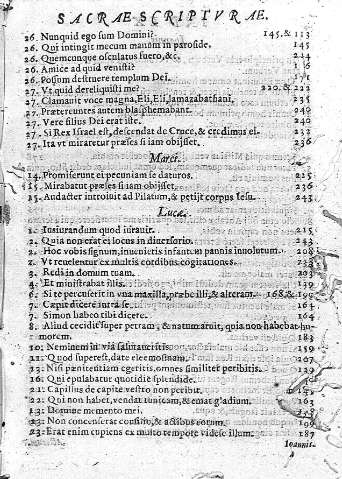 SACRAE SCRIPTVRAE.
26. Nunquid ego sum Domini? 145, & 113
26. Qui intingit mecum manum in paroside. 145
26. Quemcunque osculatus fuero, &c. 214
26. Amice ad quid venisti? 116
26. Possum destruere templum Dei. 171
27. Vt quid dereliquisti me? 220. & 222
27. Clamauit voce magna, Eli, Eli, lamazabathani. 237
27. Prætereuntes autem blasphemabant. 249
27. Vere filius Dei erat iste. 240
27. Si Rex Israel est, descendat de Cruce, & credimus ei. 232
27. Ita vt miraretur præses si iam obijsset. 236
Marci.
14. Promiserunt ei pecuniam se daturos. 215
15. Mirabatur præses si iam obijsset. 236
15. Audacter introiuit ad Pilatum, & petijt corpus Iesu. 243
Lucæ.
1. Iusiurandum quod iurauit. 215
2. Quia non erat ei locus in diuersorio. 243
2. Hoc vobis signum, inuenietis infantem pannis inuolutum. 208
2. Vt reuelentur ex multis cordibus cogitationes. 233
3. Redi in domum tuam. 203
4. Et ministrabat illis. 139
6. Si te percusserit in vna maxilla, præbe illi, & alteram. 168, &
6. 183
7. Simon habeo tibi dicere. 164
8. Aliud cecidit super petram, & natum aruit, quia non habebat humorem. 183
10. Neminem in via salutaueritis. 159
11. Quod superest, date eleemosynam. 207
13. Nisi pænitentiam egeritis, omnes similiter peribitis. 139
16. Qui epulabatur quotidie splendide.
21. Capillus de capite vestro non peribit.
22. Qui non habet, vendat tunicam, & emat gladium. 163
23. Domine memento mei.
23. Non consenserat consilio, & actibus eorum.
23. Erat enim cupiens ex multo tempore videre illum. 187
Ioannis